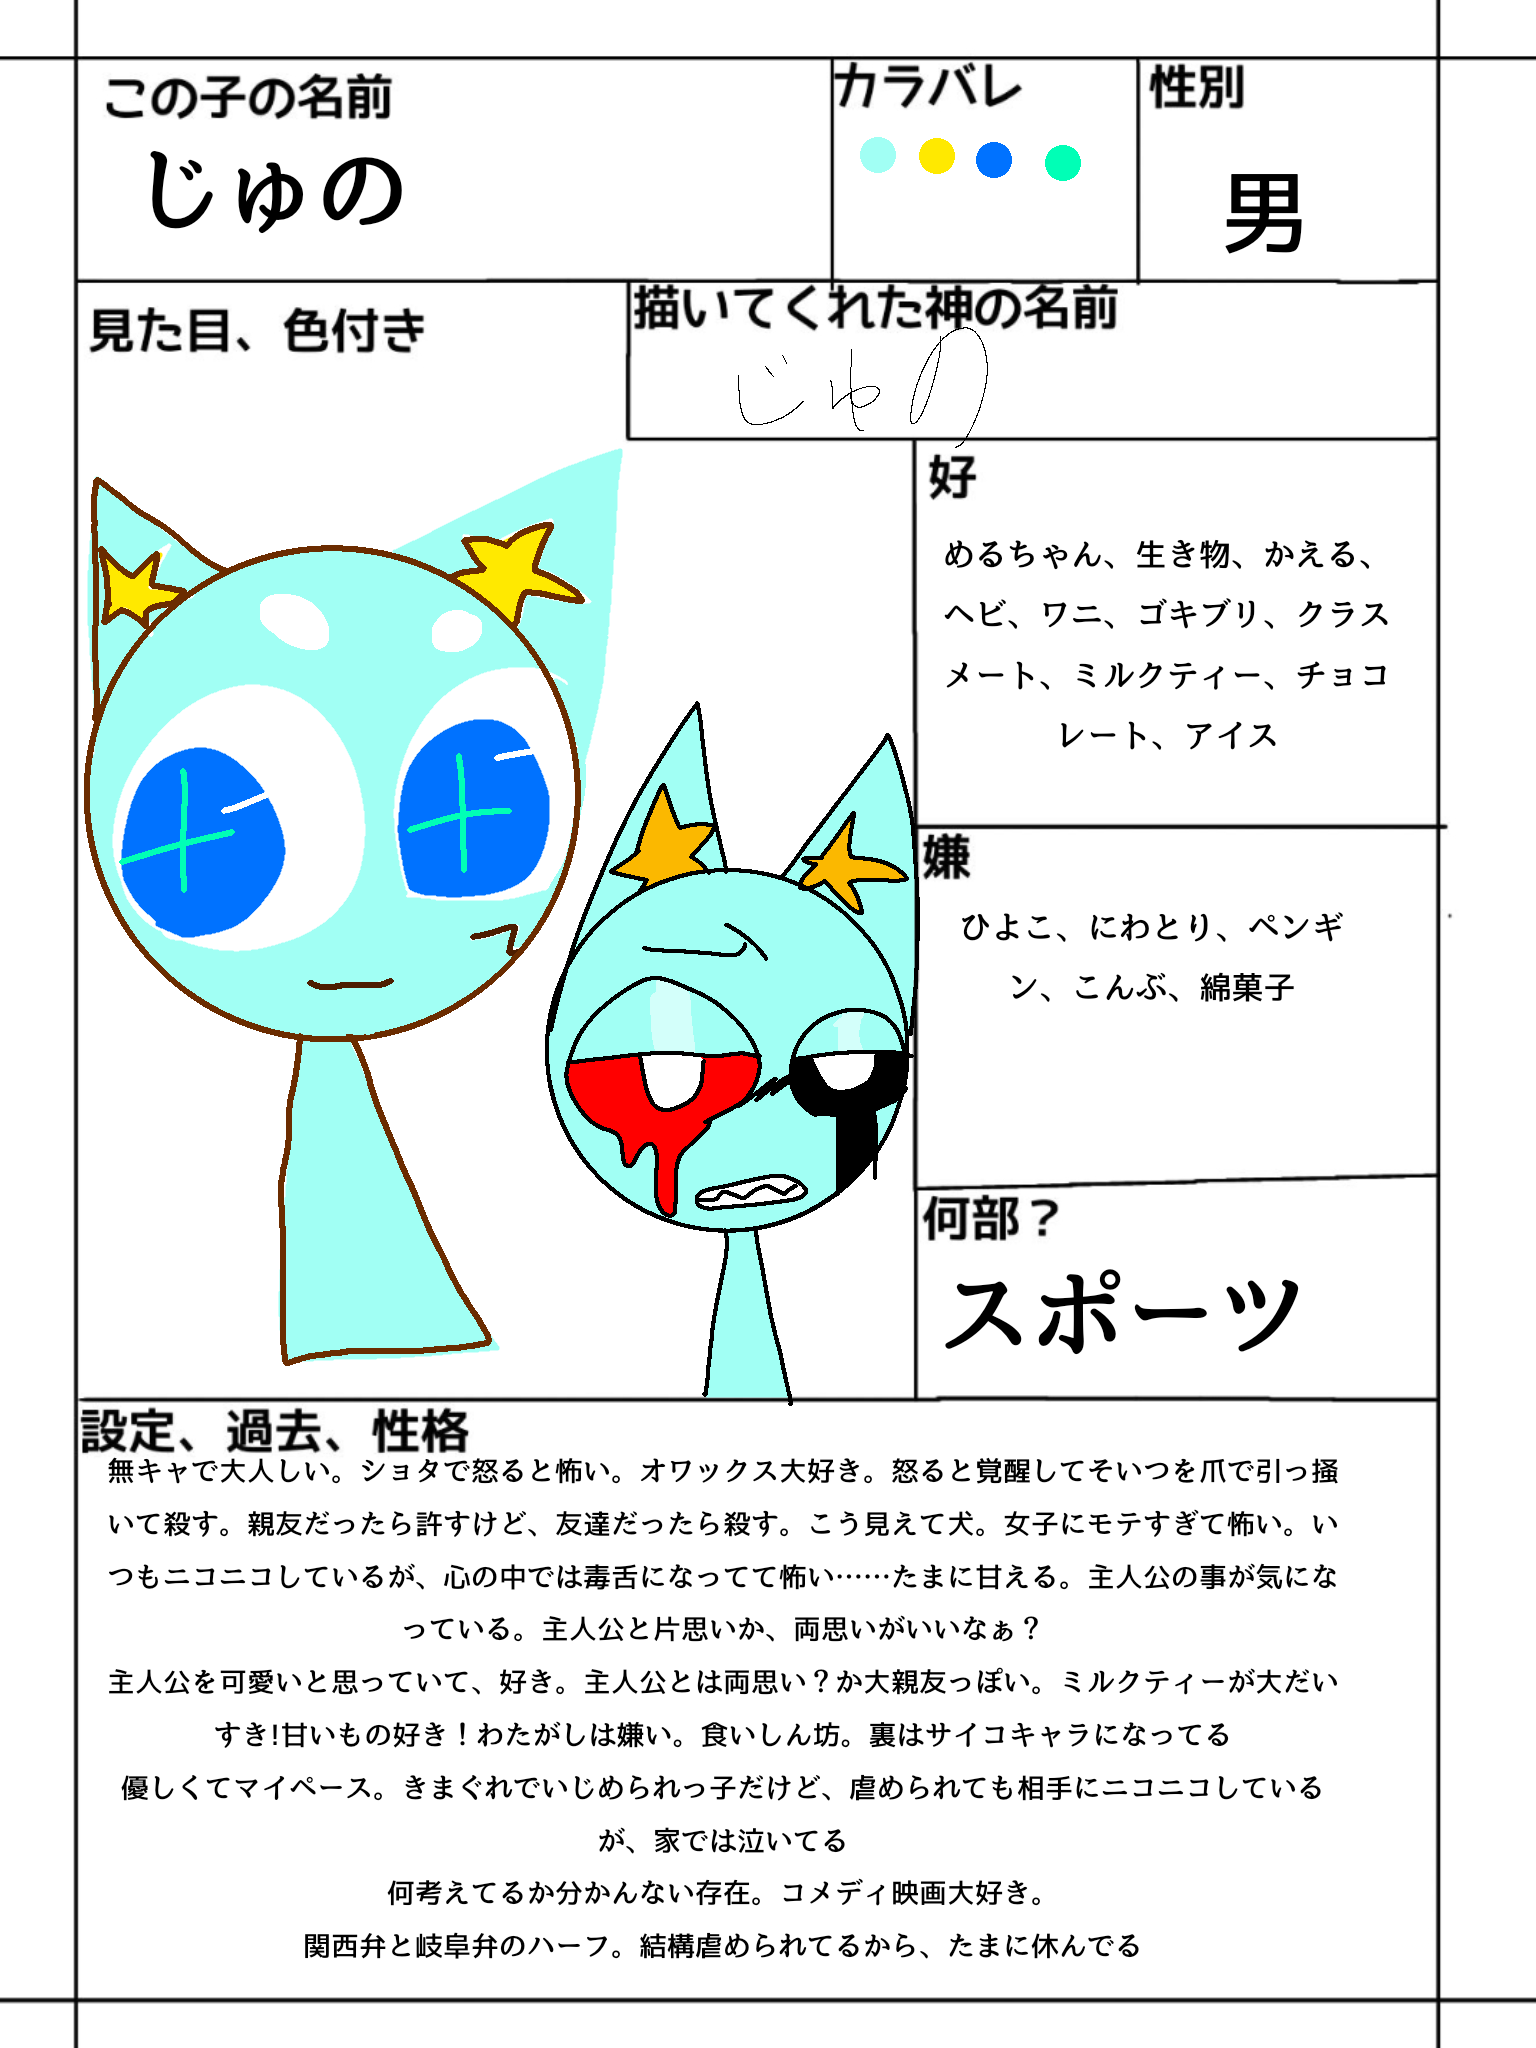 この子の名前
じゅの
カラバレ
性別
男
見た目、色付き
描いてくれた神の名前
じゅの
好
めるちゃん、生き物、かえる、
ヘビ、ワニ、ゴキブリ、クラス
メート、ミルクティー、チョコ
レート、アイス
嫌
ひよこ、にわとり、ペンギ
ン、こんぶ、綿菓子
何部？
スポーツ
設定、過去、性格
無キャで大人しい。ショタで怒ると怖い。オワックス大好き。怒ると覚醒してそいつを爪で引っ掻
いて殺す。親友だったら許すけど、友達だったら殺す。こう見えて犬。女子にモテすぎて怖い。い
つもニコニコしているが、心の中では毒舌になってて怖い……たまに甘える。主人公の事が気にな
っている。主人公と片思いか、両思いがいいなぁ？
主人公を可愛いと思っていて、好き。主人公とは両思い？か大親友っぽい。ミルクティーが大だい
すき!甘いもの好き！わたがしは嫌い。食いしん坊。裏はサイコキャラになってる
優しくてマイペース。きまぐれでいじめられっ子だけど、虐められても相手にニコニコしている
が、家では泣いてる
何考えてるか分かんない存在。コメディ映画大好き。
関西弁と岐阜弁のハーフ。結構虐められてるから、たまに休んでる